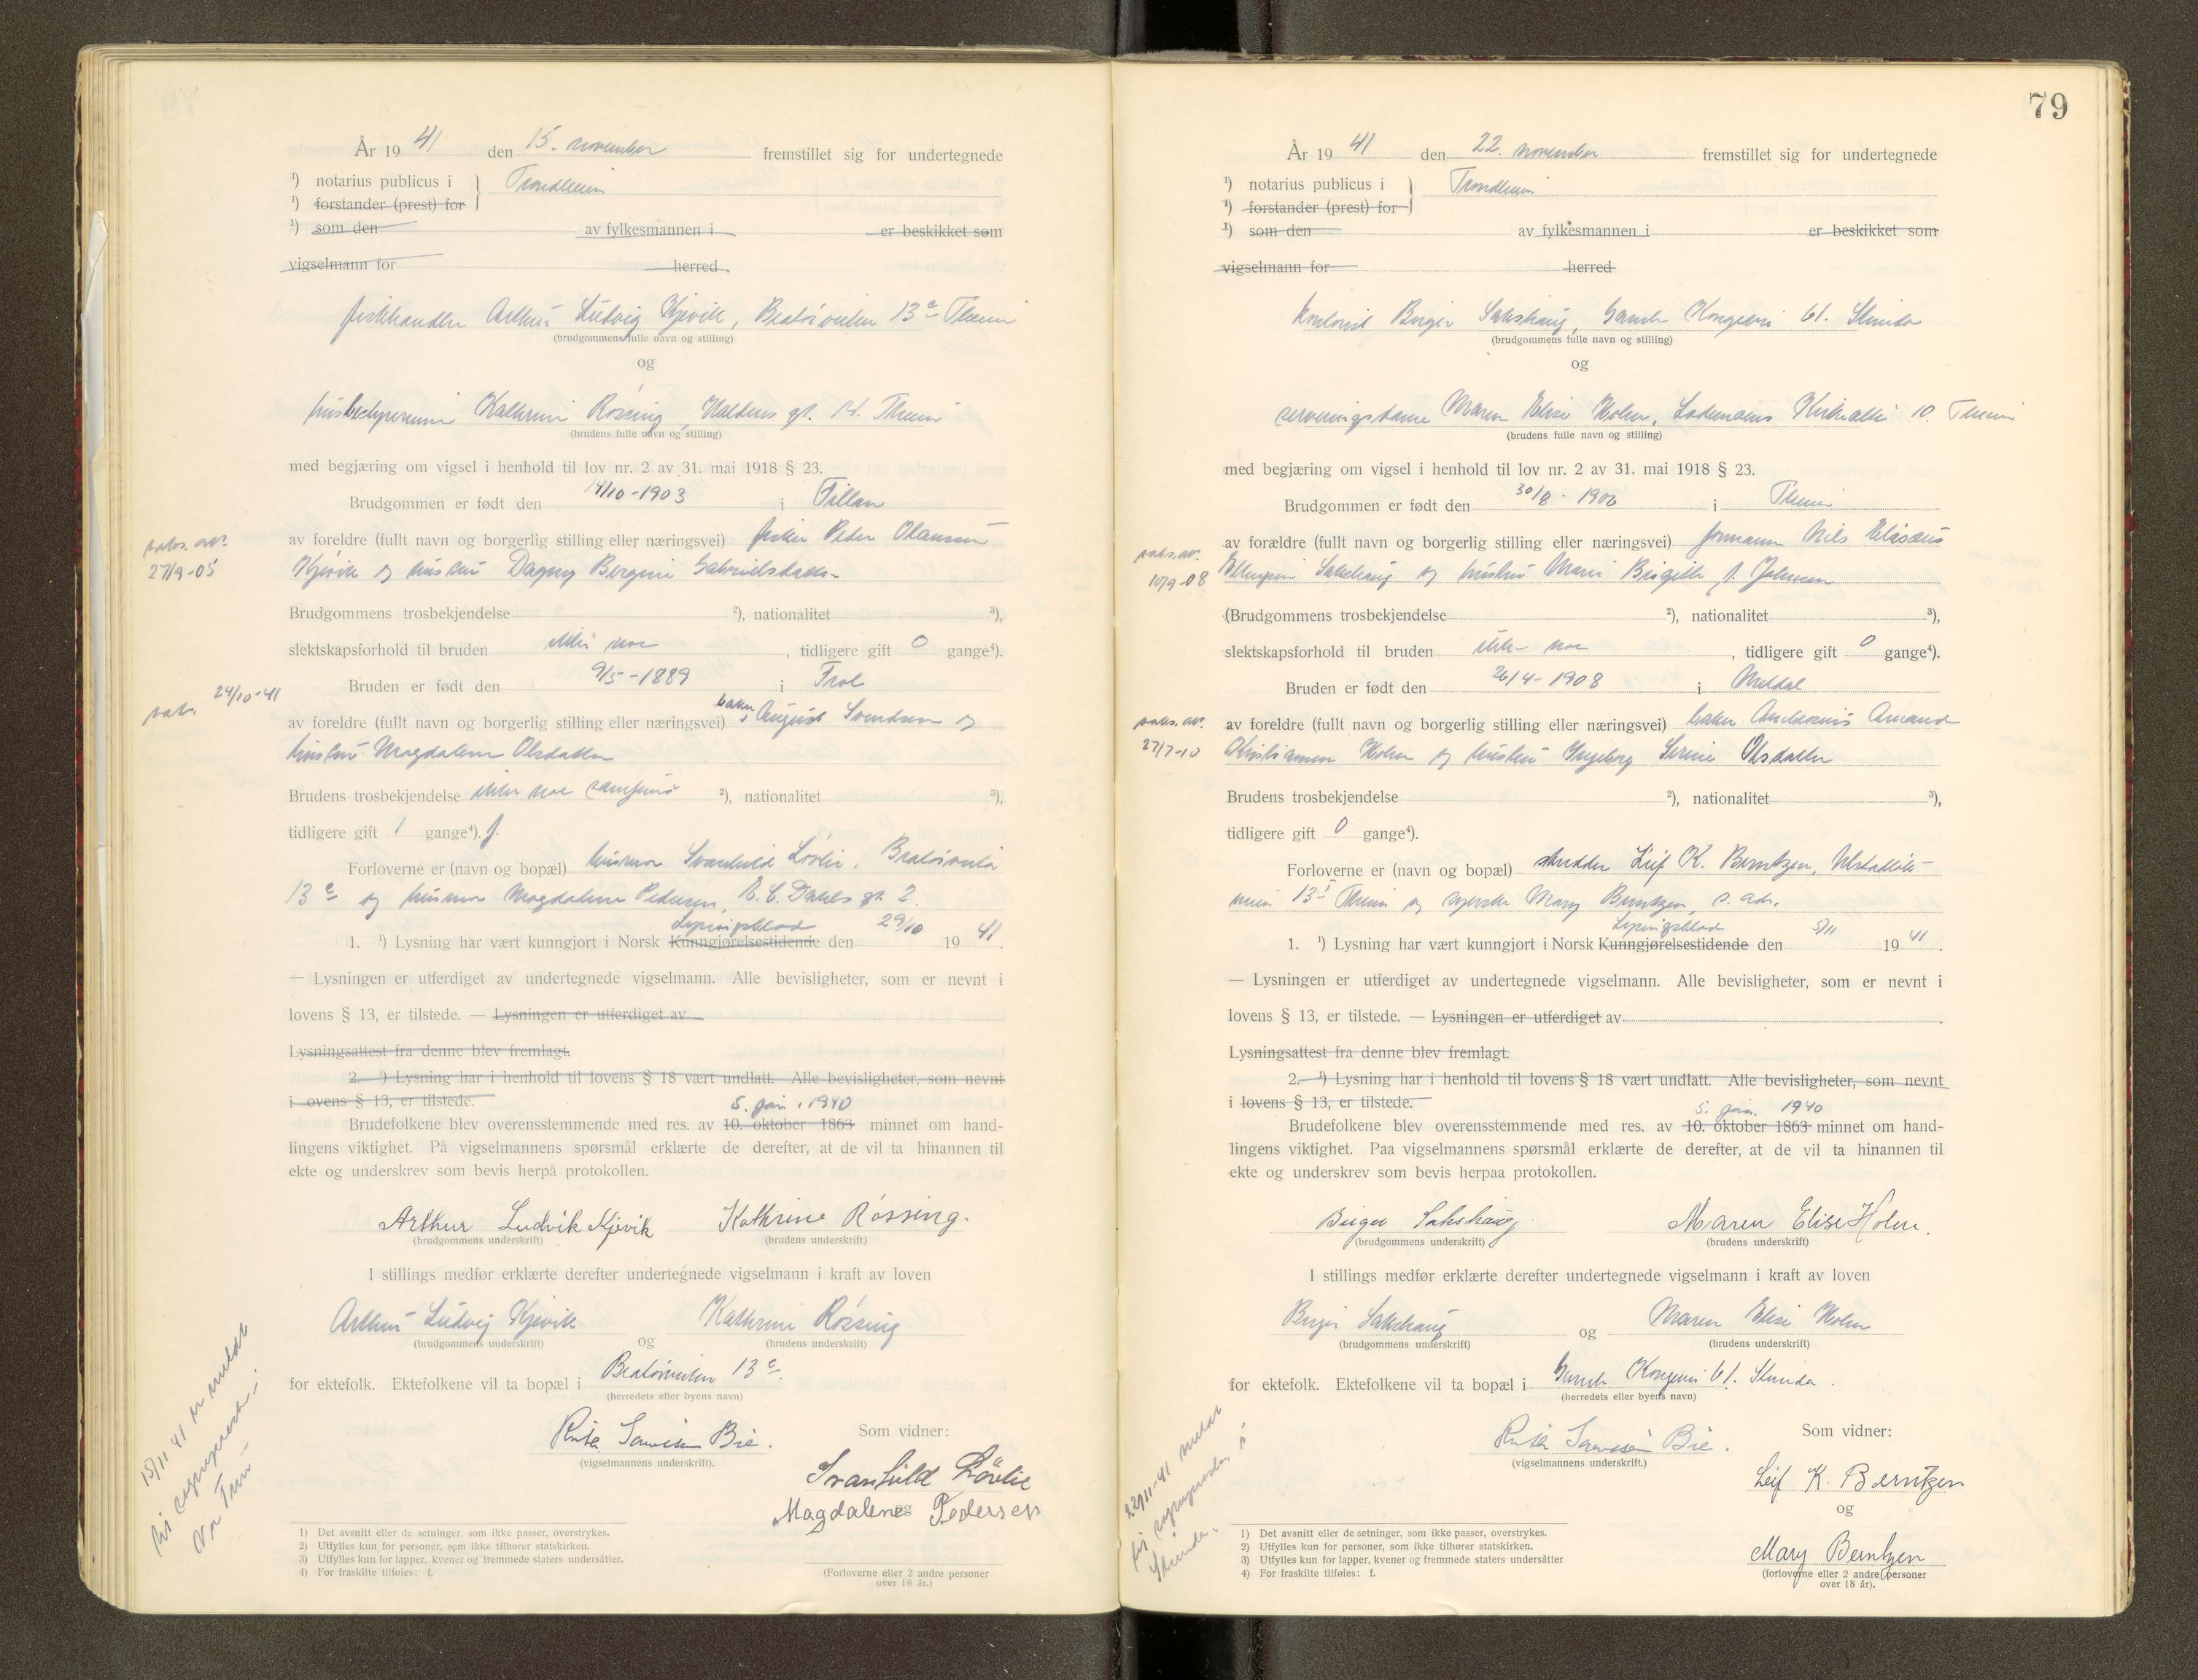 År 19 41 den 15. november fremstillet sig for undertegnede
¹) notarius publicus i } Trondheim
¹) forstander (prest) for
¹) som den av fylkesmannen i er beskikket som
vigselmann for herred
fiskhandler Arthur Ludvig Kjevik, Brattørveiten 13 c Theim
(brudgommens fulle navn og stilling)
og
husbestyrerinne Kathrine Røssing, Kalderns gt. 14. Theim
(brudens fulle navn og stilling)
med begjæring om vigsel i henhold til lov nr. 2 av 31. mai 1918 § 23.
Brudgommen er født den 14/10-1903 i Fillan
av foreldre (fullt navn og borgerlig stilling eller næringsvei) fisker Peder Olaussen
Kjevik og hustru Dagny Bergine Gabrielsdatter
Brudgommens trosbekjendelse ²), nationalitet ³),
slektskapsforhold til bruden ikke noe, tidligere gift 0 gange⁴).
Bruden er født den 9/5-1889 i Frol
av foreldre (fullt navn og borgerlig stilling eller næringsvei) baker August Svendsen og
hustru Magdalene Olsdatter
Brudens trosbekjendelse ikke noe samfunn ²), nationalitet ³),
tidligere gift 1 gange⁴). f.
Forloverne er (navn og bopæl) husmor Svanhild Løvlie, Brattørveita
13 c og husmor Magdalene Pedersen, E. C. Dahls gt. 2.
Lysingsblad
1. ¹) Lysning har vært kunngjort i Norsk Kunngjørelsestidende den 29/10 19 41.
— Lysningen er utferdiget av undertegnede vigselmann. Alle bevisligheter, som er nevnt i
lovens § 13, er tilstede. — Lysningen er utferdiget av
Lysningsattest fra denne blev fremlagt.
2. ¹) Lysning har i henhold til lovens § 18 vært undlatt. Alle bevisligheter, som nevnt
i ovens § 13, er tilstede.
5. jan. 1940
Brudefolkene blev overensstemmende med res. av 10. oktober 1863 minnet om hand-
lingens viktighet. På vigselmannens spørsmål erklærte de derefter, at de vil ta hinannen til
ekte og underskrev som bevis herpå protokollen.
Arthur Ludvik Kjevik Kathrine Røssing.
(brudgommens underskrift) (brudens underskrift)
I stillings medfør erklærte derefter undertegnede vigselmann i kraft av loven
Arthur Ludvig Kjevik og Kathrine Røssing
(brudgommens underskrift) (brudens underskrift)
for ektefolk. Ektefolkene vil ta bopæl i Brattørveiten 13 c.
(herredets eller byens navn)
Bie.
(vigselmannens underskrift).
Som vidner:
Svanhild Løvlie
og
Magdalene Pedersen
(Forloverne eller 2 andre personer
over 18 år.)
1) Det avsnitt eller de setninger, som ikke passer, overstrykes.
2) Utfylles kun for personer, som ikke tilhører statskirken.
3) Utfylles kun for lapper, kvener og fremmede staters undersåtter.
4) For fraskilte tilføies: f.
vaks. av.
27/9-05
vaks. 24/10-41
15/11 41 er meldt
til sogneprest i
Vor Frue
79
År 19 41 den 22. november fremstillet sig for undertegnede
¹) notarius publicus i } Trondheim
¹) forstander (prest) for
¹) som den av fylkesmannen i er beskikket som
vigselmann for herred
kontorist Birger Sakshaug, Gamle Kongevei 61. Strinda
(brudgommens fulle navn og stilling)
og
serveringsdame Maren Elise Holm, Lademoens Kirkealle 10. Theim
(brudens fulle navn og stilling)
med begjæring om vigsel i henhold til lov nr. 2 av 31. mai 1918 § 23.
Brudgommen er født den 30/8-1906 i Theim
av forældre (fullt navn og borgerlig stilling eller næringsvei) formann Nils Eliseus
Sakshaug og hustru Marie Birgitte f. Johnsen
(Brudgommens trosbekjendelse ²), nationalitet ³),
slektskapsforhold til bruden ikke noe, tidligere gift 0 gange⁴).
Bruden er født den 26/4-1908 i Meldal
av foreldre (fullt navn og borgerlig stilling eller næringsvei) baker Amand
Kristiansen Holm og hustru Ingeborg Serine Olsdatter
Brudens trosbekjendelse ²), nationalitet ³),
tidligere gift 0 gange⁴).
Forloverne er (navn og bopæl) skredder Leif K. Berntzen,
13 I Theim og syerske Mary Berntzen, s. adr.
Lysingsblad
1. ¹) Lysning har vært kunngjort i Norsk Kunngjørelsestidende den 5/11 19 41.
— Lysningen er utferdiget av undertegnede vigselmann. Alle bevisligheter, som er nevnt i
lovens § 13, er tilstede. — Lysningen er utferdiget av
Lysningsattest fra denne blev fremlagt.
2. ¹) Lysning har i henhold til lovens § 18 vært undlatt. Alle bevisligheter, som nevnt
i lovens § 13, er tilstede.
5. jan. 1940
Brudefolkene blev overensstemmende med res. av 10. oktober 1863 minnet om hand-
lingens viktighet. Paa vigselmannens spørsmål erklærte de derefter, at de vil ta hinannen til
ekte og underskrev som bevis herpaa protokollen.
Birger Sakshaug Maren Elise Holm.
(brudgommens underskrift) (brudens underskrift)
I stillings medfør erklærte derefter undertegnede vigselmann i kraft av loven
Birger Sakshaug og Maren Elise Holm
(brudgommens underskrift) (brudens underskrift)
for ektefolk. Ektefolkene vil ta bopæl i Gamle Kongevei 61. Strinda.
(herredets eller byens navn)
Bie.
(vigselmannens underskrift.)
Som vidner:
Leif K. Berntzen
og
Mary Berntzen
(forloverne eller 2 andre personer
over 18 år).
1) Det avsnitt eller de setninger, som ikke passer, overstrykes.
2) Utfylles kun for personer, som ikke tilhører statskirken.
3) Utfylles kun for lapper, kvener og fremmede staters undersåtter
4) For fraskilte tilføies: f.
vaks. av.
10/9-08
vaks. av.
27/7-10
22/11-41 meldt
til sogneprest i
Strinda.